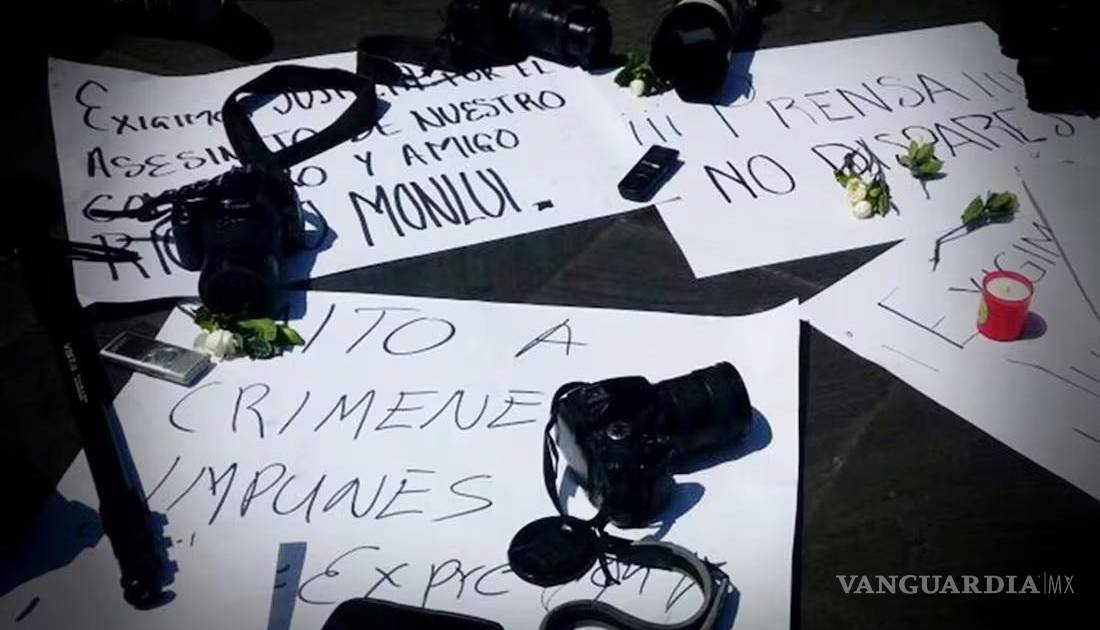 EXIGIMO JUSTI POR EL
ASESIN DE NUESTRO
Y AMIGO
MONLUI.
¡¡¡ PRENSA !!!
NO DISPARES
EXIGIM
ITO A
CRIMENE
IMPUNES
VANGUARDIA|MX